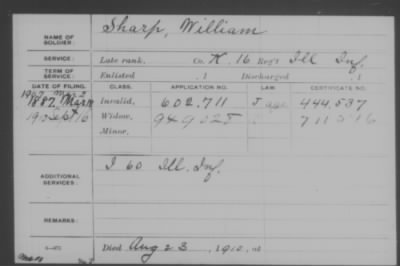 NAME OF SOLDIER: Sharp, William
SERVICE: Late rank, Co. K, 16 Reg't Ill Inf.
TERM OF SERVICE: Enlisted , 1 Discharged , 1
DATE OF FILING. CLASS. APPLICATION NO. LAW. CERTIFICATE NO.
1887, Mar Invalid, 602.711 J age 444.537
1910 Sept 16 Widow, 949028 711
Minor,
ADDITIONAL SERVICES: I 60 Ill. Inf.
REMARKS:
Died Aug 23, 1910, at